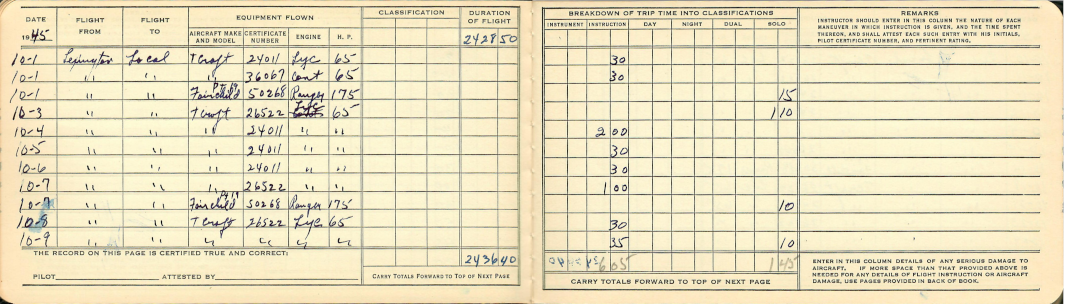 DATE
FLIGHT FROM
FLIGHT TO
EQUIPMENT FLOWN
CLASSIFICATION
DURATION OF FLIGHT
1945
AIRCRAFT MAKE AND MODEL
CERTIFICATE NUMBER
ENGINE
H. P.
2428 50
10-1 Lexington Local Tcraft 24011 Lyc 65
10-1 " " " 36067 Cont 65
10-1 " " Fairchild PT 19 50268 Ranger 175
10-3 " " Tcraft 26522 Lyc 65
10-4 " " " 24011 " "
10-5 " " " 24011 " "
10-6 " " " 24011 " "
10-7 " " " 26522 " "
10-7 " " Fairchild PT 19 50268 Ranger 175
10-8 " " Tcraft 26522 Lyc 65
10-9 " " " " " "
THE RECORD ON THIS PAGE IS CERTIFIED TRUE AND CORRECT:
2436 40
PILOT ATTESTED BY
CARRY TOTALS FORWARD TO TOP OF NEXT PAGE
BREAKDOWN OF TRIP TIME INTO CLASSIFICATIONS
INSTRUMENT INSTRUCTION DAY NIGHT DUAL SOLO
REMARKS
INSTRUCTOR SHOULD ENTER IN THIS COLUMN THE NATURE OF EACH
MANEUVER IN WHICH INSTRUCTION IS GIVEN, AND THE TIME SPENT
THEREON, AND SHALL ATTEST EACH SUCH ENTRY WITH HIS INITIALS,
PILOT CERTIFICATE NUMBER, AND PERTINENT RATING.
30
30
15
1 10
2 00
30
30
1 00
10
30
35 10
6 05 1 45
CARRY TOTALS FORWARD TO TOP OF NEXT PAGE
ENTER IN THIS COLUMN DETAILS OF ANY SERIOUS DAMAGE TO
AIRCRAFT. IF MORE SPACE THAN THAT PROVIDED ABOVE IS
NEEDED FOR ANY DETAILS OF FLIGHT INSTRUCTION OR AIRCRAFT
DAMAGE, USE PAGES PROVIDED IN BACK OF BOOK.